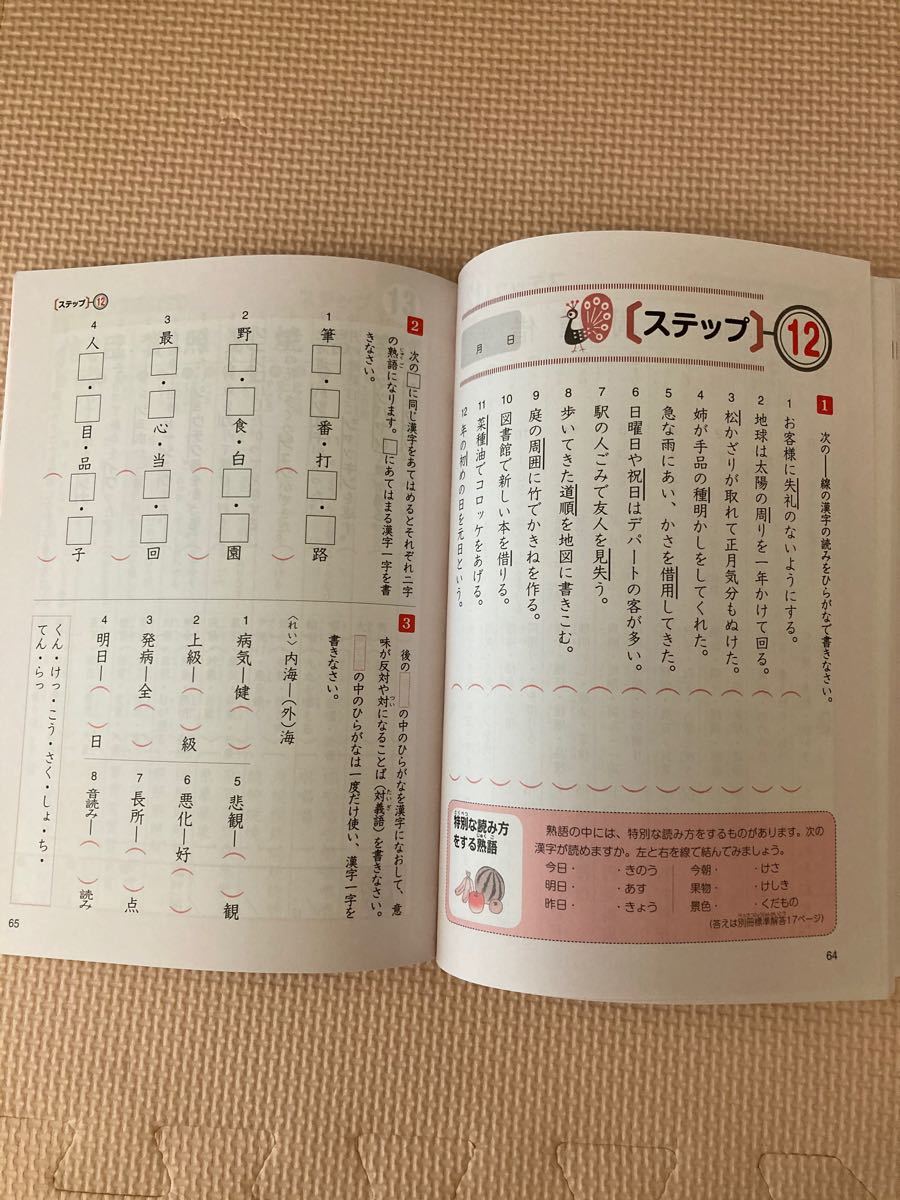 ［ステップ］12
月　日
1　次の――線の漢字の読みをひらがなで書きなさい。
1　お客様に失礼のないようにする。（　）
2　地球は太陽の周りを一年かけて回る。（　）
3　松かざりが取れて正月気分もぬけた。（　）
4　姉が手品の種明かしをしてくれた。（　）
5　急な雨にあい、かさを借用してきた。（　）
6　日曜日や祝日はデパートの客が多い。（　）
7　駅の人ごみで友人を見失う。（　）
8　歩いてきた道順を地図に書きこむ。（　）
9　庭の周囲に竹でかきねを作る。（　）
10　図書館で新しい本を借りる。（　）
11　菜種油でコロッケをあげる。（　）
12　年の初めの日を元日という。（　）
特別な読み方
をする熟語
熟語の中には、特別な読み方をするものがあります。次の
漢字が読めますか。左と右を線で結んでみましょう。
今日・　・きのう　今朝・　・けさ
明日・　・あす　果物・　・けしき
昨日・　・きょう　景色・　・くだもの
（答えは別冊標準解答17ページ）
64
［ステップ］12
2　次の□に同じ漢字をあてはめるとそれぞれ二字
の熟語になります。□にあてはまる漢字一字を書
きなさい。
1　筆□・□番・打□・□路（　）
2　野□・□食・白□・□園（　）
3　最□・□心・当□・□回（　）
4　人□・□目・品□・□子（　）
3　後の□の中のひらがなを漢字になおして、意
味が反対や対になることば（対義語）を書きなさい。
□の中のひらがなは一度だけ使い、漢字一字を
書きなさい。
〈れい〉内海―（外）海
1　病気―健（　）
2　上級―（　）級
3　発病―全（　）
4　明日―（　）日
5　悲観―（　）観
6　悪化―好（　）
7　長所―（　）点
8　音読み―（　）読み
くん・けっ・こう・さく・しょ・ち・
てん・らっ
65